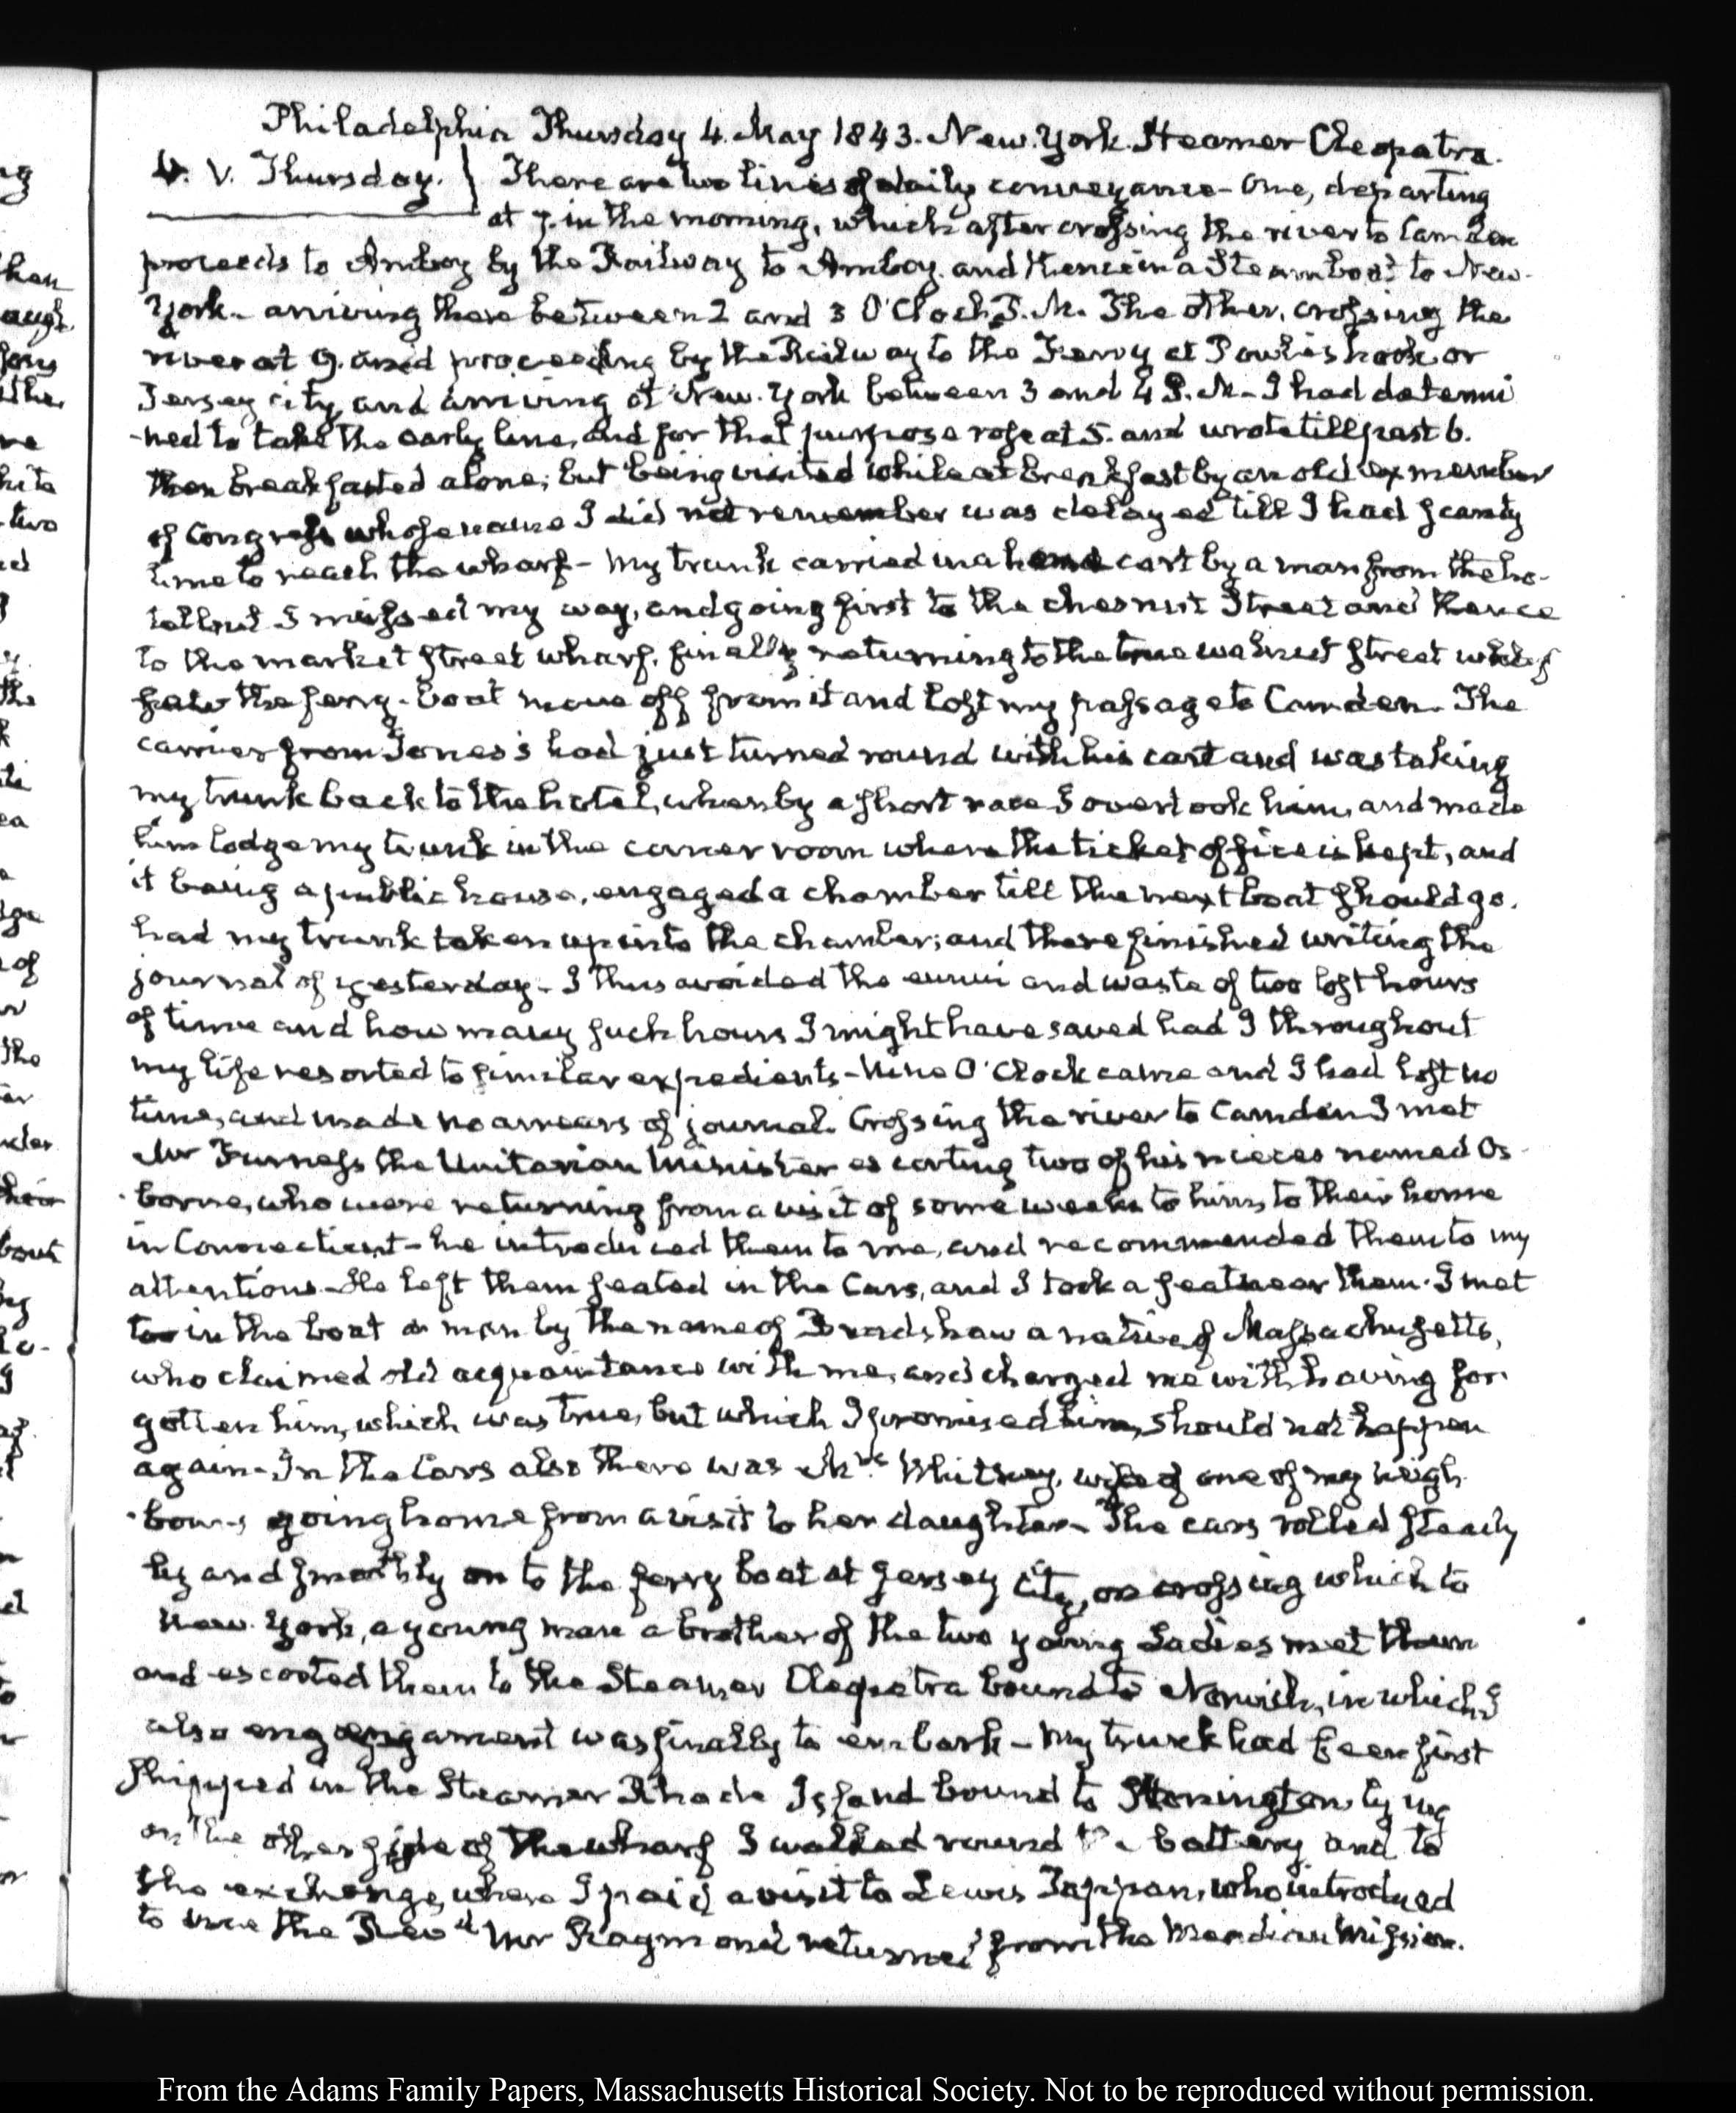 Philadelphia Thursday 4. May 1843. New-York. Steamer Cleopatra.
4. V. Thursday. } There are two lines of daily conveyance - One, departing
at 7. in the morning, which after crossing the river to Camden
proceeds to Amboy by the Railway to Amboy and thence in a Steamboat to New-
York - arriving there between 2 and 3 O'Clock P.M. The other, crossing the
river at 9. and proceeding by the Railway to the Ferry at Powles hook or
Jersey city, and arriving at New-York between 3 and 4 P.M - I had determi
-ned to take the early line, and for that purpose rose at 5. and wrote till past 6.
then breakfasted alone; but being visited while at breakfast by an old ex member
of Congress whose name I did not remember was delayed till I had scanty
time to reach the wharf - My trunk carried in a hand cart by a man from the ho-
tel but I missed my way, and going first to the chesnut Street and thence
to the market street wharf, finally returning to the true walnut street wharf
saw the ferry-boat move off from it and lost my passage to Camden. The
carrier from Jones's had just turned round with his cart and was taking
my trunk back to the hotel, when by a short race I overtook him, and made
him lodge my trunk in the corner room where the ticket office is kept, and
it being a public house, engaged a chamber till the next boat should go.
had my trunk taken up into the chamber; and there finished writing the
journal of yesterday - I thus avoided the ennui and waste of two lost hours
of time and how many such hours I might have saved had I throughout
my life resorted to similar expedients - Nine O'Clock came and I had lost no
time, and made no arrears of journal. Crossing the river to Camden I met
Mr Furness the Unitarian Minister escorting two of his nieces named Os-
-borne, who were returning from a visit of some weeks to him, to their home
in Connecticut - he introduced them to me, and recommended them to my
attentions - He left them seated in the Cars, and I took a seat near them. I met
too in the boat a man by the name of Bradshaw a native of Massachusetts,
who claimed old acquaintance with me, and charged me with having for-
gotten him, which was true, but which I promised him, should not happen
again - In the Cars also there was Mrs. Whitney, wife of one of my neigh-
-bours going home from a visit to her daughter - The cars rolled steadi
ly and smoothly on to the ferry boat at Jersey City, on crossing which to
New-York, a young man a brother of the two young Ladies met them
and escorted them to the Steamer Cleopatra bound to Norwich, in which I
also was finally to embark - My trunk had been first
shipped in the Steamer Rhode Island bound to Stonington lying
on the other side of the wharf I walked round the battery and to
the exchange, where I paid a visit to Lewis Tappan, who introduced
to me the Revd Mr Raymond returned from the Mendian Mission.
From the Adams Family Papers, Massachusetts Historical Society. Not to be reproduced without permission.